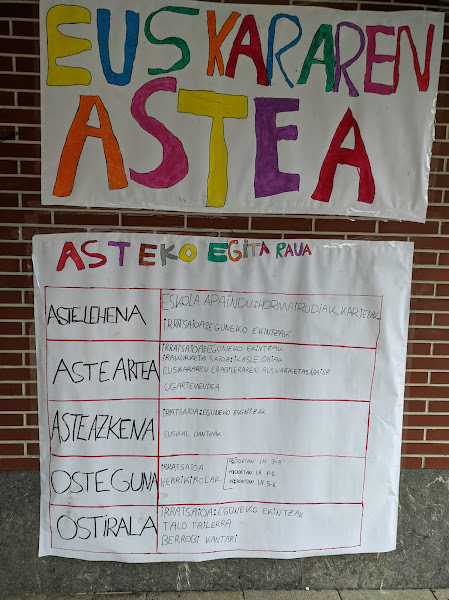 EUSKARAREN
ASTEA
ASTEKO EGITARAUA
ASTELEHENA
ESKOLA APAINDU: HORMAIRUDIAK, KARTELAK
IRRATSAIOA: EGUNEKO EKINTZAK
ASTEARTEA
IRRATSAIOA: EGUNEKO EKINTZAK
IRAKURKETA SAIOA: IKASLE OHIAK
EUSKARAREN ERABILERAREN AUSNARKETA: UNAIER
UGARTEMENDIA
ASTEAZKENA
IRRATSAIOA: EGUNEKO EKINTZAK
EUSKAL DANTZAK
OSTEGUNA
IRRATSAIOA
HERRI KIROLAK
LH 3-4
LH 1-2
LH 5-6
OSTIRALA
IRRATSAIOA: EGUNEKO EKINTZAK
TALO TAILERRA
BERROBI KANTARI